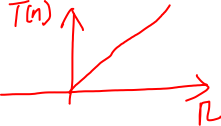 T(n)
n